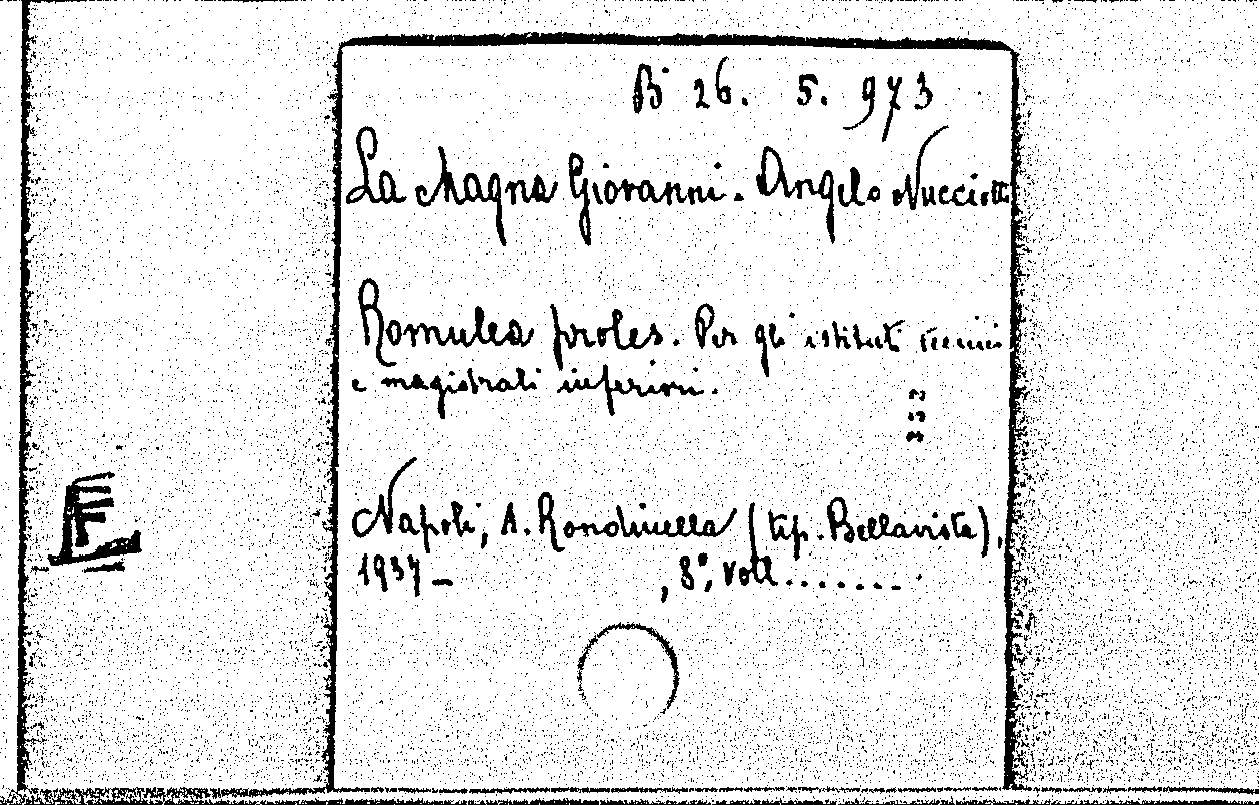 Bi 26. 5. 973
La Magna Giovanni. Angelo Nucciotti
Romulea proles. Per gli istituti tecnici
e magistrali inferiori.
Napoli, A. Rondinella (tip. Bellavista),
1937 – , 8°, voll........